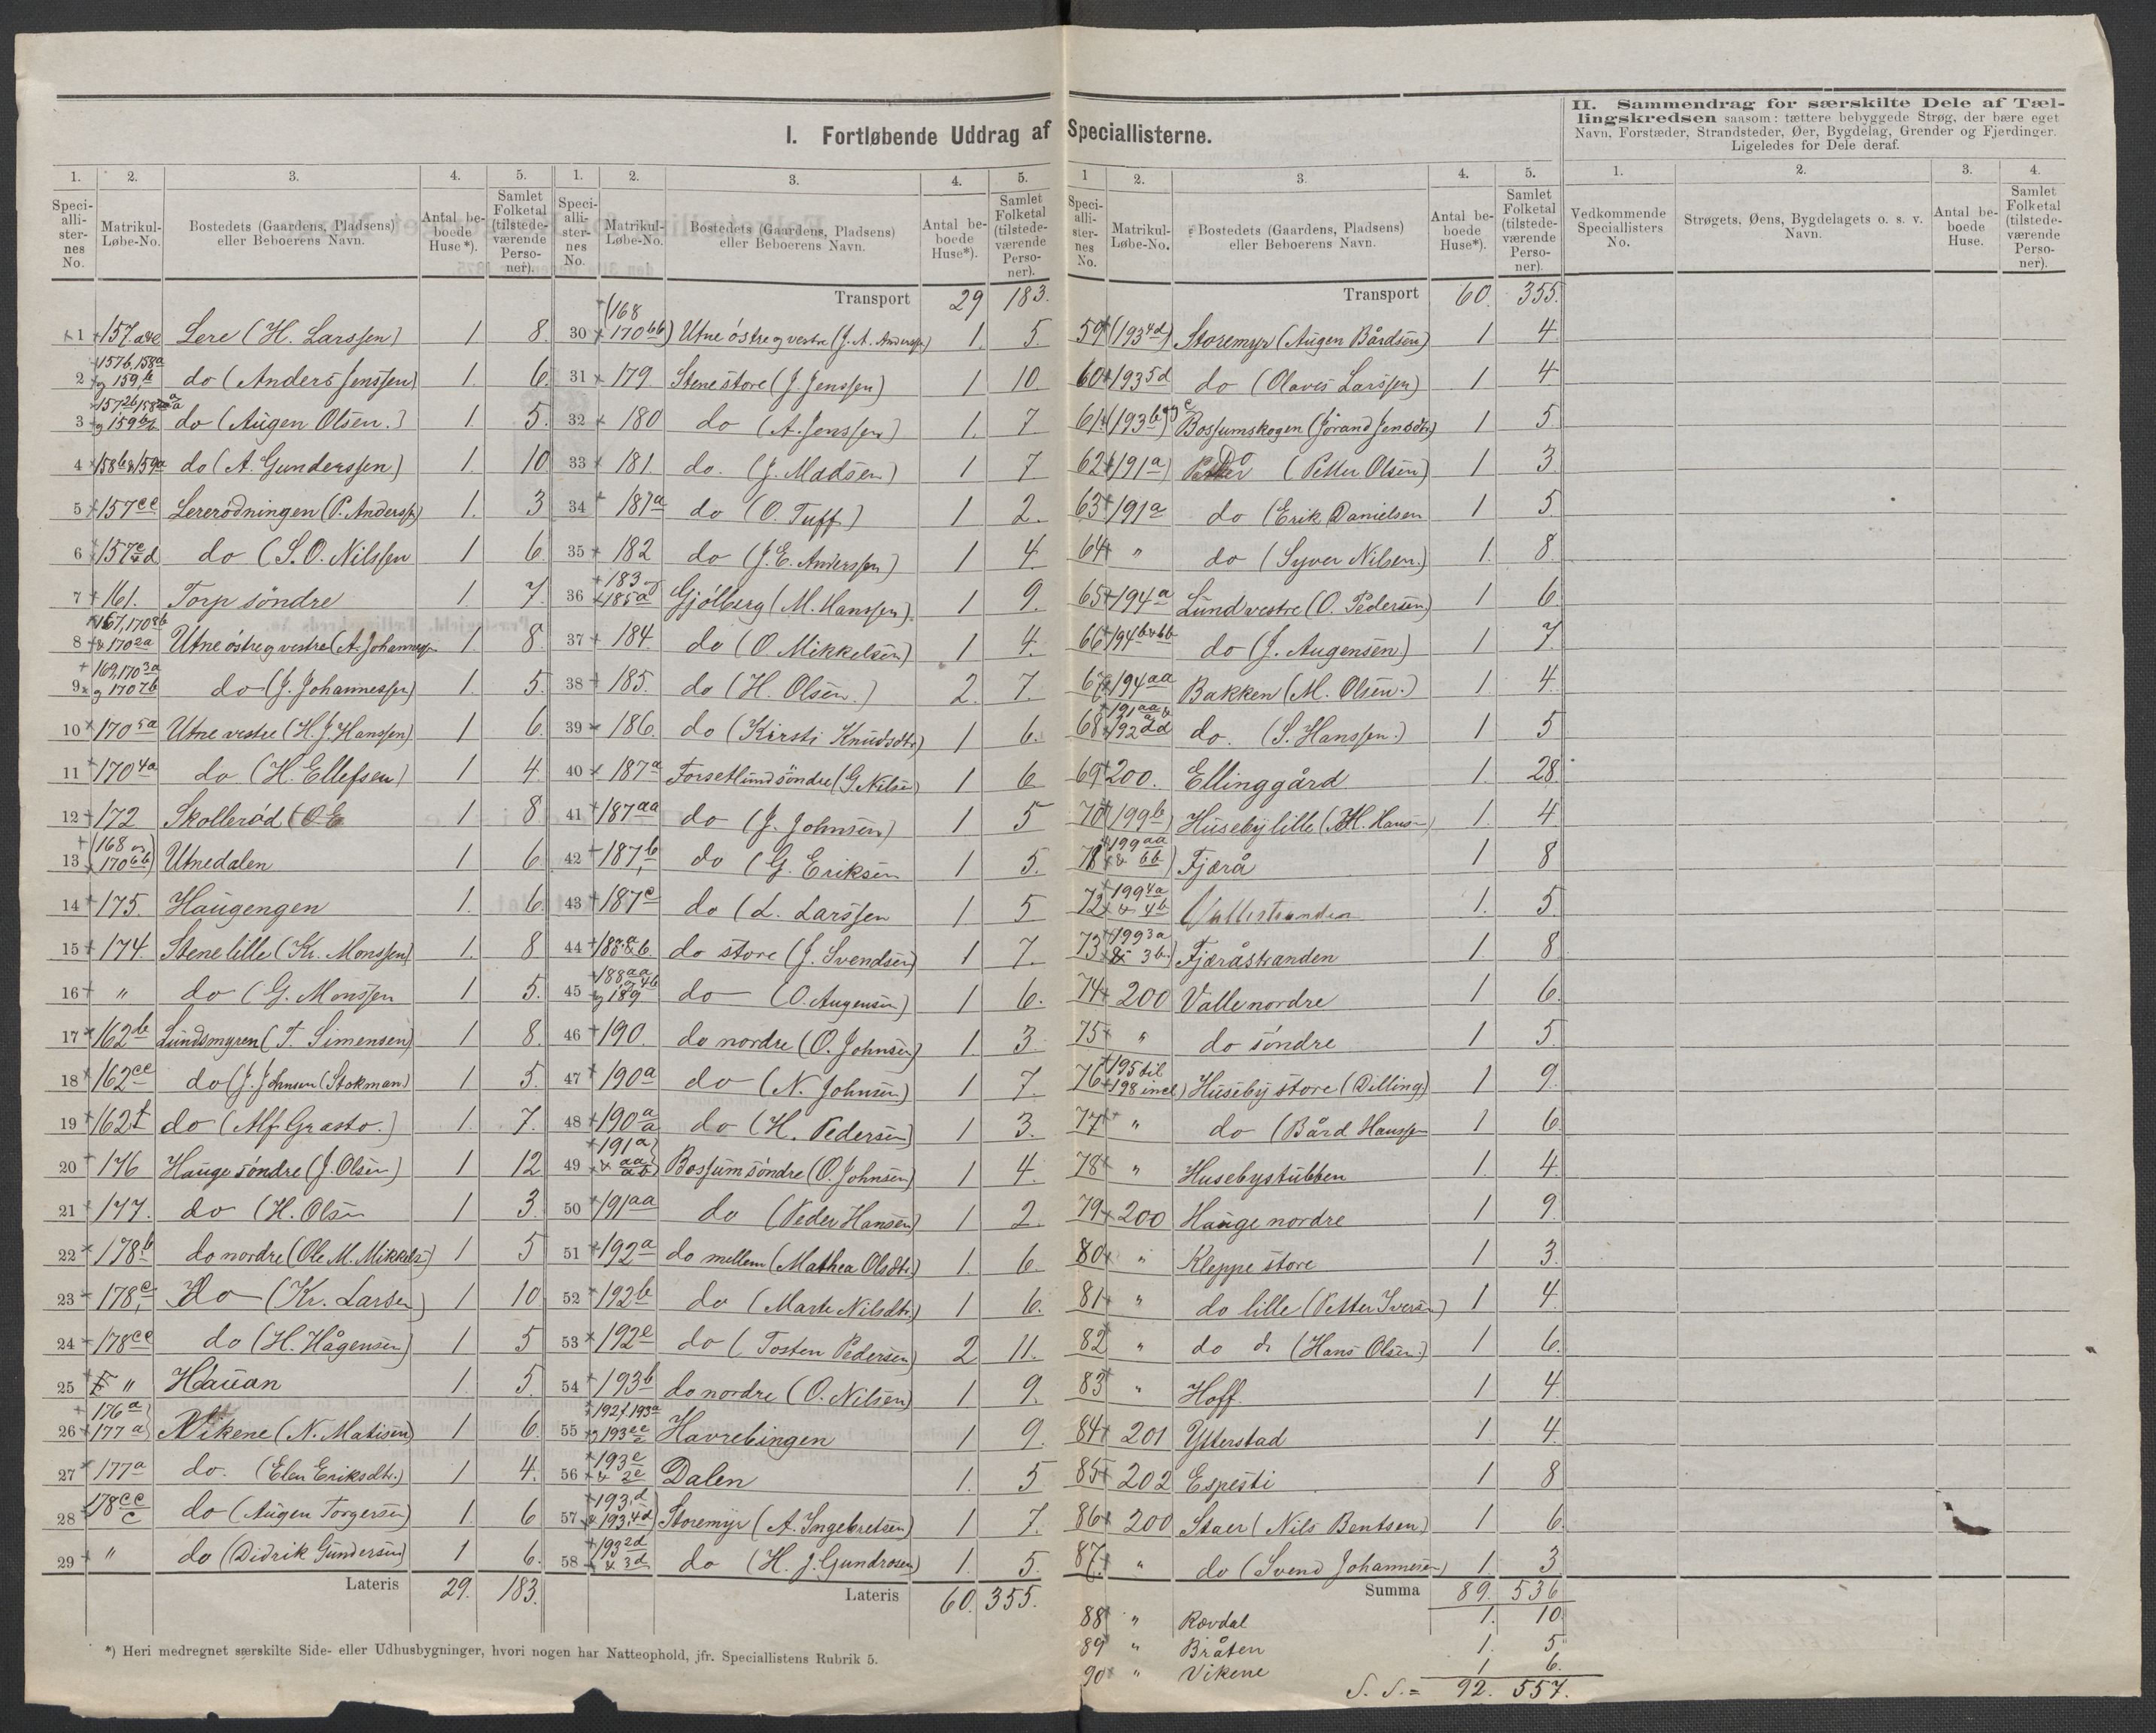 I. Fortløbende Uddrag af Speciallisterne.
II. Sammendrag for særskilte Dele af Tæl-
lingskredsen saasom: tættere bebyggede Strøg, der bære eget
Navn, Forstæder, Strandsteder, Øer, Bygdelag, Grender og Fjerdinger.
Ligeledes for Dele deraf.
1. 2. 3. 4. 5.
Speci-alli-ster-nes No. Matrikul-Løbe-No. Bostedets (Gaardens, Pladsens) eller Beboerens Navn. Antal be-boede Huse*). Samlet Folketal (tilstede-værende Perso-ner).
1 157 a&c Lere (H. Larssen) 1 8
2 157b, 158a og 159,b do (Anders Jenssen) 1. 6.
3 do (Augen Olsen.) 1. 5.
4 158b&159a do (A. Gunderssen) 1. 10
5 157cc Lererödningen (P. Anderssen) 1. 3
6 do (S. O. Nilssen 1 6
7 161. Torp söndre 1. 7.
8 Utne östre og vestre (A. Johannessen 1. 8.
9 169, 170 3a og 170 7b do (J. Johannessen) 1. 5.
10 170 5a Utne vestre (H. J. Hanssen) 1 6.
11 170 4a do (H. Ellefsen) 1 4.
12 172 Skolleröd (O E 1 8.
13 (168 og 170 6b) Utnedalen 1 6.
14 175. Haugengen 1. 6.
15 174. Stene lille (Kr. Monssen) 1. 8
16 " do (G. Monssen 1 5.
17 162b Lundsmyren (T Simensen) 1 8.
18 162cc do (J. Johnsen (Stokman) 1 5.
19 162f do (Alf Grasto.) 1. 7.
20 176 Hauge söndre (J. Olsen) 1 12
21 177. do (H. Olsen 1 3.
22 178b do nordre (Ole M. Mikkels) 1 5
23 178c, do (Kr. Larsen) 1 10
24 178cc do (H. Hågensen) 1 5
25 " Hauan 1. 5.
26 176a 177a) Vikene (N. Matisen) 1 6.
27 177a do. (Elen Eriksdtr.) 1 4.
28 178 cc c do (Augen Torgersen) 1. 6
29 " do (Didrik Gundersen) 1 6.
Lateris 29. 183.
*) Heri medregnet særskilte Side- eller Udhusbygninger, hvori nogen har Natteophold, jfr. Speciallistens Rubrik 5.
1. 2. 3. 4. 5.
Speci-alli-ster-nes No. Matrikul-Løbe-No. Bostedets (Gaardens, Pladsens) eller Beboerens Navn. Antal be-boede Huse*). Samlet Folketal (tilstede-værende Perso-ner).
Transport 29 183.
30 (168 170 6b) Utne östre og vestre (J. A. Anderssen) 1. 5.
31 179. Stene store (J. Jenssen) 1 10.
32 180 do (A. Jenssen) 1. 7.
33 181. do. (J. Madsen) 1 7.
34 181a do (O. Tuff) 1 2.
35 182 do (J. E. Anderssen) 1 4.
36 183 og 185a Gjölberg (M. Hanssen). 1 9.
37 184. do (O. Mikkelsen) 1 4.
38 185. do (H. Olsen.) 2. 7.
39 186. do (Kirsti Knudsdtr) 1 6.
40 187a Forsetlund söndre (G. Nilsen) 1 6
41 187aa do (J. Johnsen) 1 5
42 187,b do (G. Eriksen 1 5.
43 187c do (L. Larssen 1 5
44 188a&b. do store (J. Svendsen) 1 7.
45 188aa og 189 4b do (O. Augensen) 1 6.
46 190. do nordre (O. Johnsen) 1. 3.
47 190a do (N. Johnsen) 1 7.
48 190 a a do (H. Pedersen) 1 3.
49 191a Bossum söndre (O. Johnsen) 1 4.
50 191aa do (Peder Hansen) 1 2.
51 192a do mellem (Mathea Olsdtr.) 1. 6.
52 192b do (Marte Nilsdtr.) 1 6.
53 192e do (Tosten Pedersen) 2 11.
54 193b do nordre (O. Nilsen) 1 9.
55 192f 193a Havrebingen 1 9.
56 193e & 2e Dalen 1. 5
57 193.d & 193,4d) Storemyr (A. Ingebretsen) 1 7.
58 193 2d & 3d do (H. J. Gundrosen) 1. 5.
Lateris 60. 355.
1 2. 3. 4. 5.
Speci-alli-ster-nes No. Matrikul-Løbe-No. Bostedets (Gaardens, Pladsens) eller Beboerens Navn. Antal be-boede Huse*). Samlet Folketal (tilstede-værende Perso-ner).
Transport 60. 355.
59 (193 4d) Storemyr (Augen Bårdsen) 1 4.
60 193 5d do (Olaves Larssen) 1 4
61. (193b og c Bossumskogen (Jörand Jensdtr) 1 5.
62 (191a) Do (Petter Olsen) 1 3.
63 191a do (Erik Danielsen 1 5.
64 " do (Syver Nilsen.) 1. 8.
65 194a Lund vestre (O. Pedersen) 1 6.
66 194b&bb do (J. Augensen.) 1 7.
67 194aa Bakken (M. Olsen.) 1 4.
68 191aa & 192 dd do. (S. Hanssen.) 1 5
69 200. Ellinggård 1. 28.
70 (199b) Huseby lille (H. Hansen) 1. 4
71 (199aa & bb) Fjærå 1 8
72 199 4a & 4b Vallestranden 1. 5.
73 199 3a & 3b.) Fjæråstranden 1 8
74 200 Valle nordre 1 6.
75 " do söndre 1 5.
76 (195 til 198 incl.) Huseby store (Dilling) 1 9.
77 " do (Bård Hanssen 1 6.
78 " Husebystubben 1 4.
79 200 Hauge nordre 1 9.
80 " Kleppe store 1 3.
81 " do lille (Petter Iversen) 1 4.
82 " do do (Hans Olsen.) 1 6.
83 " Hoff. 1 4.
84 201 Ytterstad 1 4.
85 202 Espesti 1 8
86 200 Staer (Nils Bentsen) 1 6.
87. " do (Svend Johannesen) 1. 3
Summa 89. 536
88 " Rovdal 1. 10
89 " Bråten 1. 5
90 " Vikene 1 6.
S. S. = 92. 557.
1. 2. 3. 4.
Vedkommende Speciallisters No. Strøgets, Øens, Bygdelagets o. s. v. Navn. Antal be-boede Huse. Samlet Folketal (tilstede-værende Perso-ner).